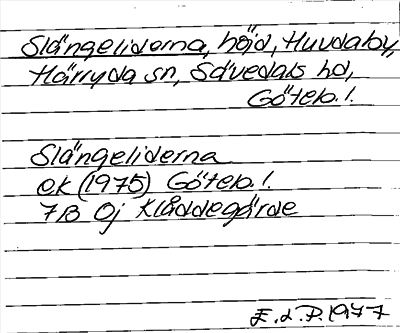 Slängeliderna, höjd, Huvdaby,
Härryda sn, Sävedals hd,
Göteb. l.
Slängeliderna
ek (1975) Göteb. l.
7B 0j Klåddegärde
E. d. P. 1977